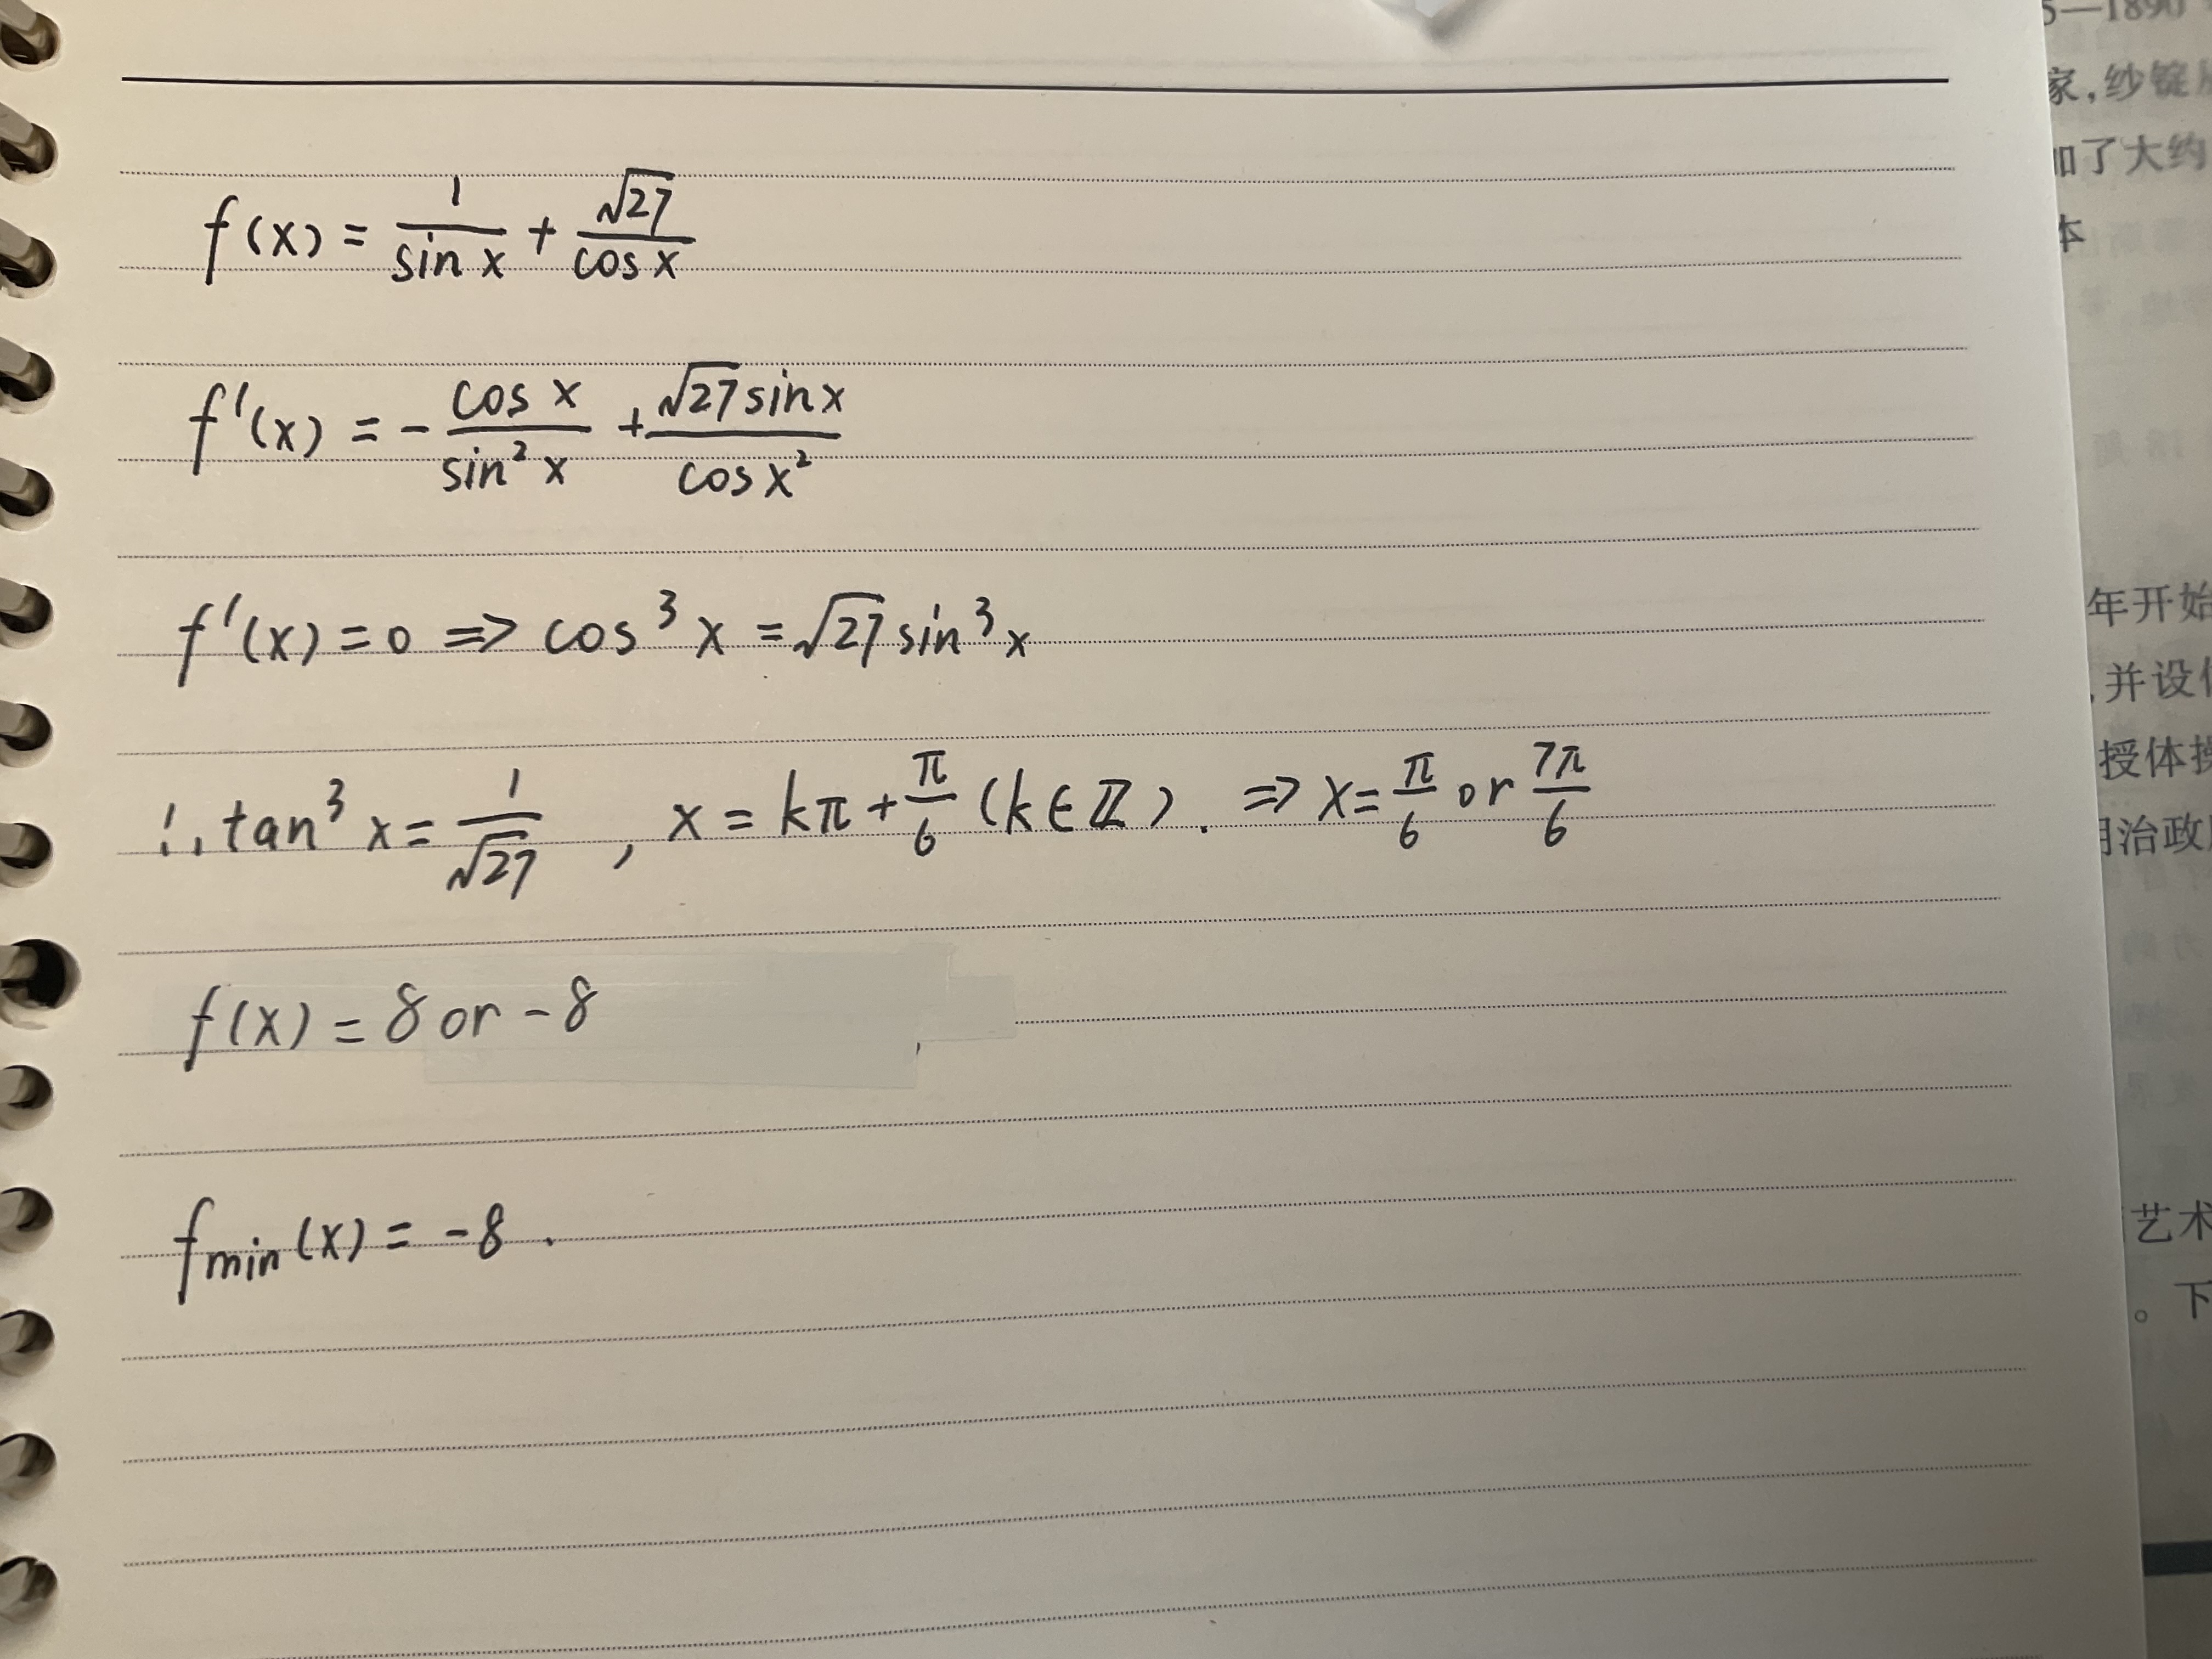 f(x) = 1/sin x + √27/cos x
f'(x) = - cos x/sin² x + √27 sin x/cos x²
f'(x) = 0 ⇒ cos³ x = √27 sin³ x
∴ tan³ x = 1/√27 , x = kπ + π/6 (k∈ℤ). ⇒ x = π/6 or 7π/6
f(x) = 8 or -8
f min (x) = -8 .
5—1890
家,纱锭
加了大约
本
年开始
,并设
授体
治政
艺术
。下